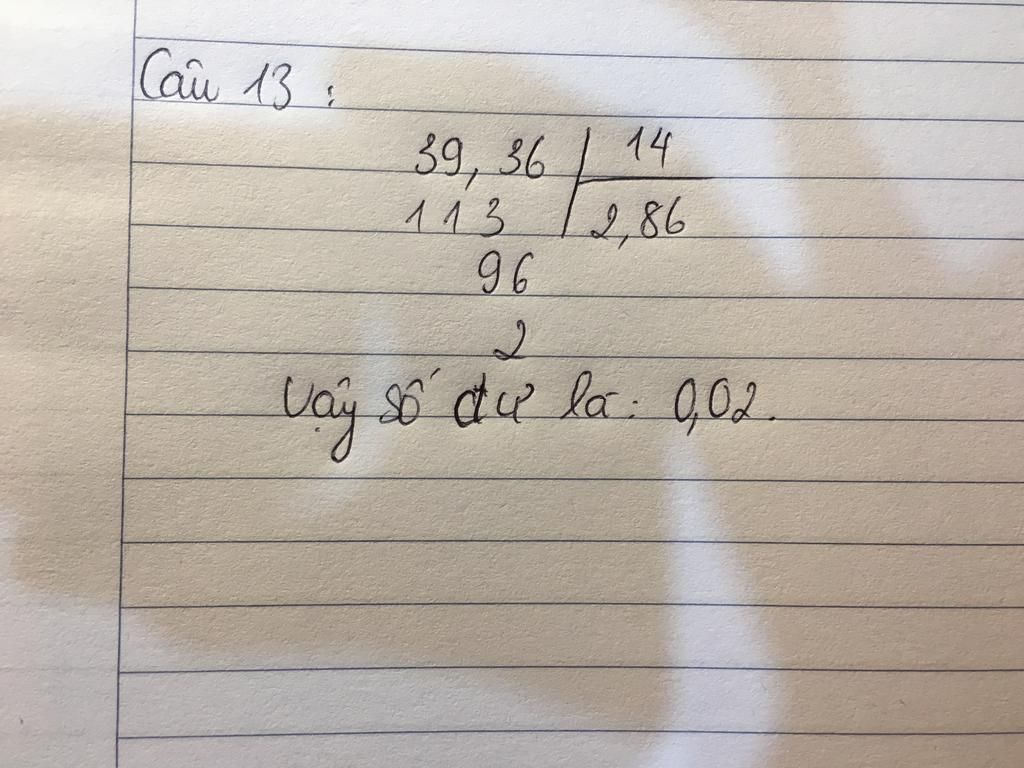 Câu 13 :
39,36 14
113 2,86
96
2
Vậy số dư là: 0,02.